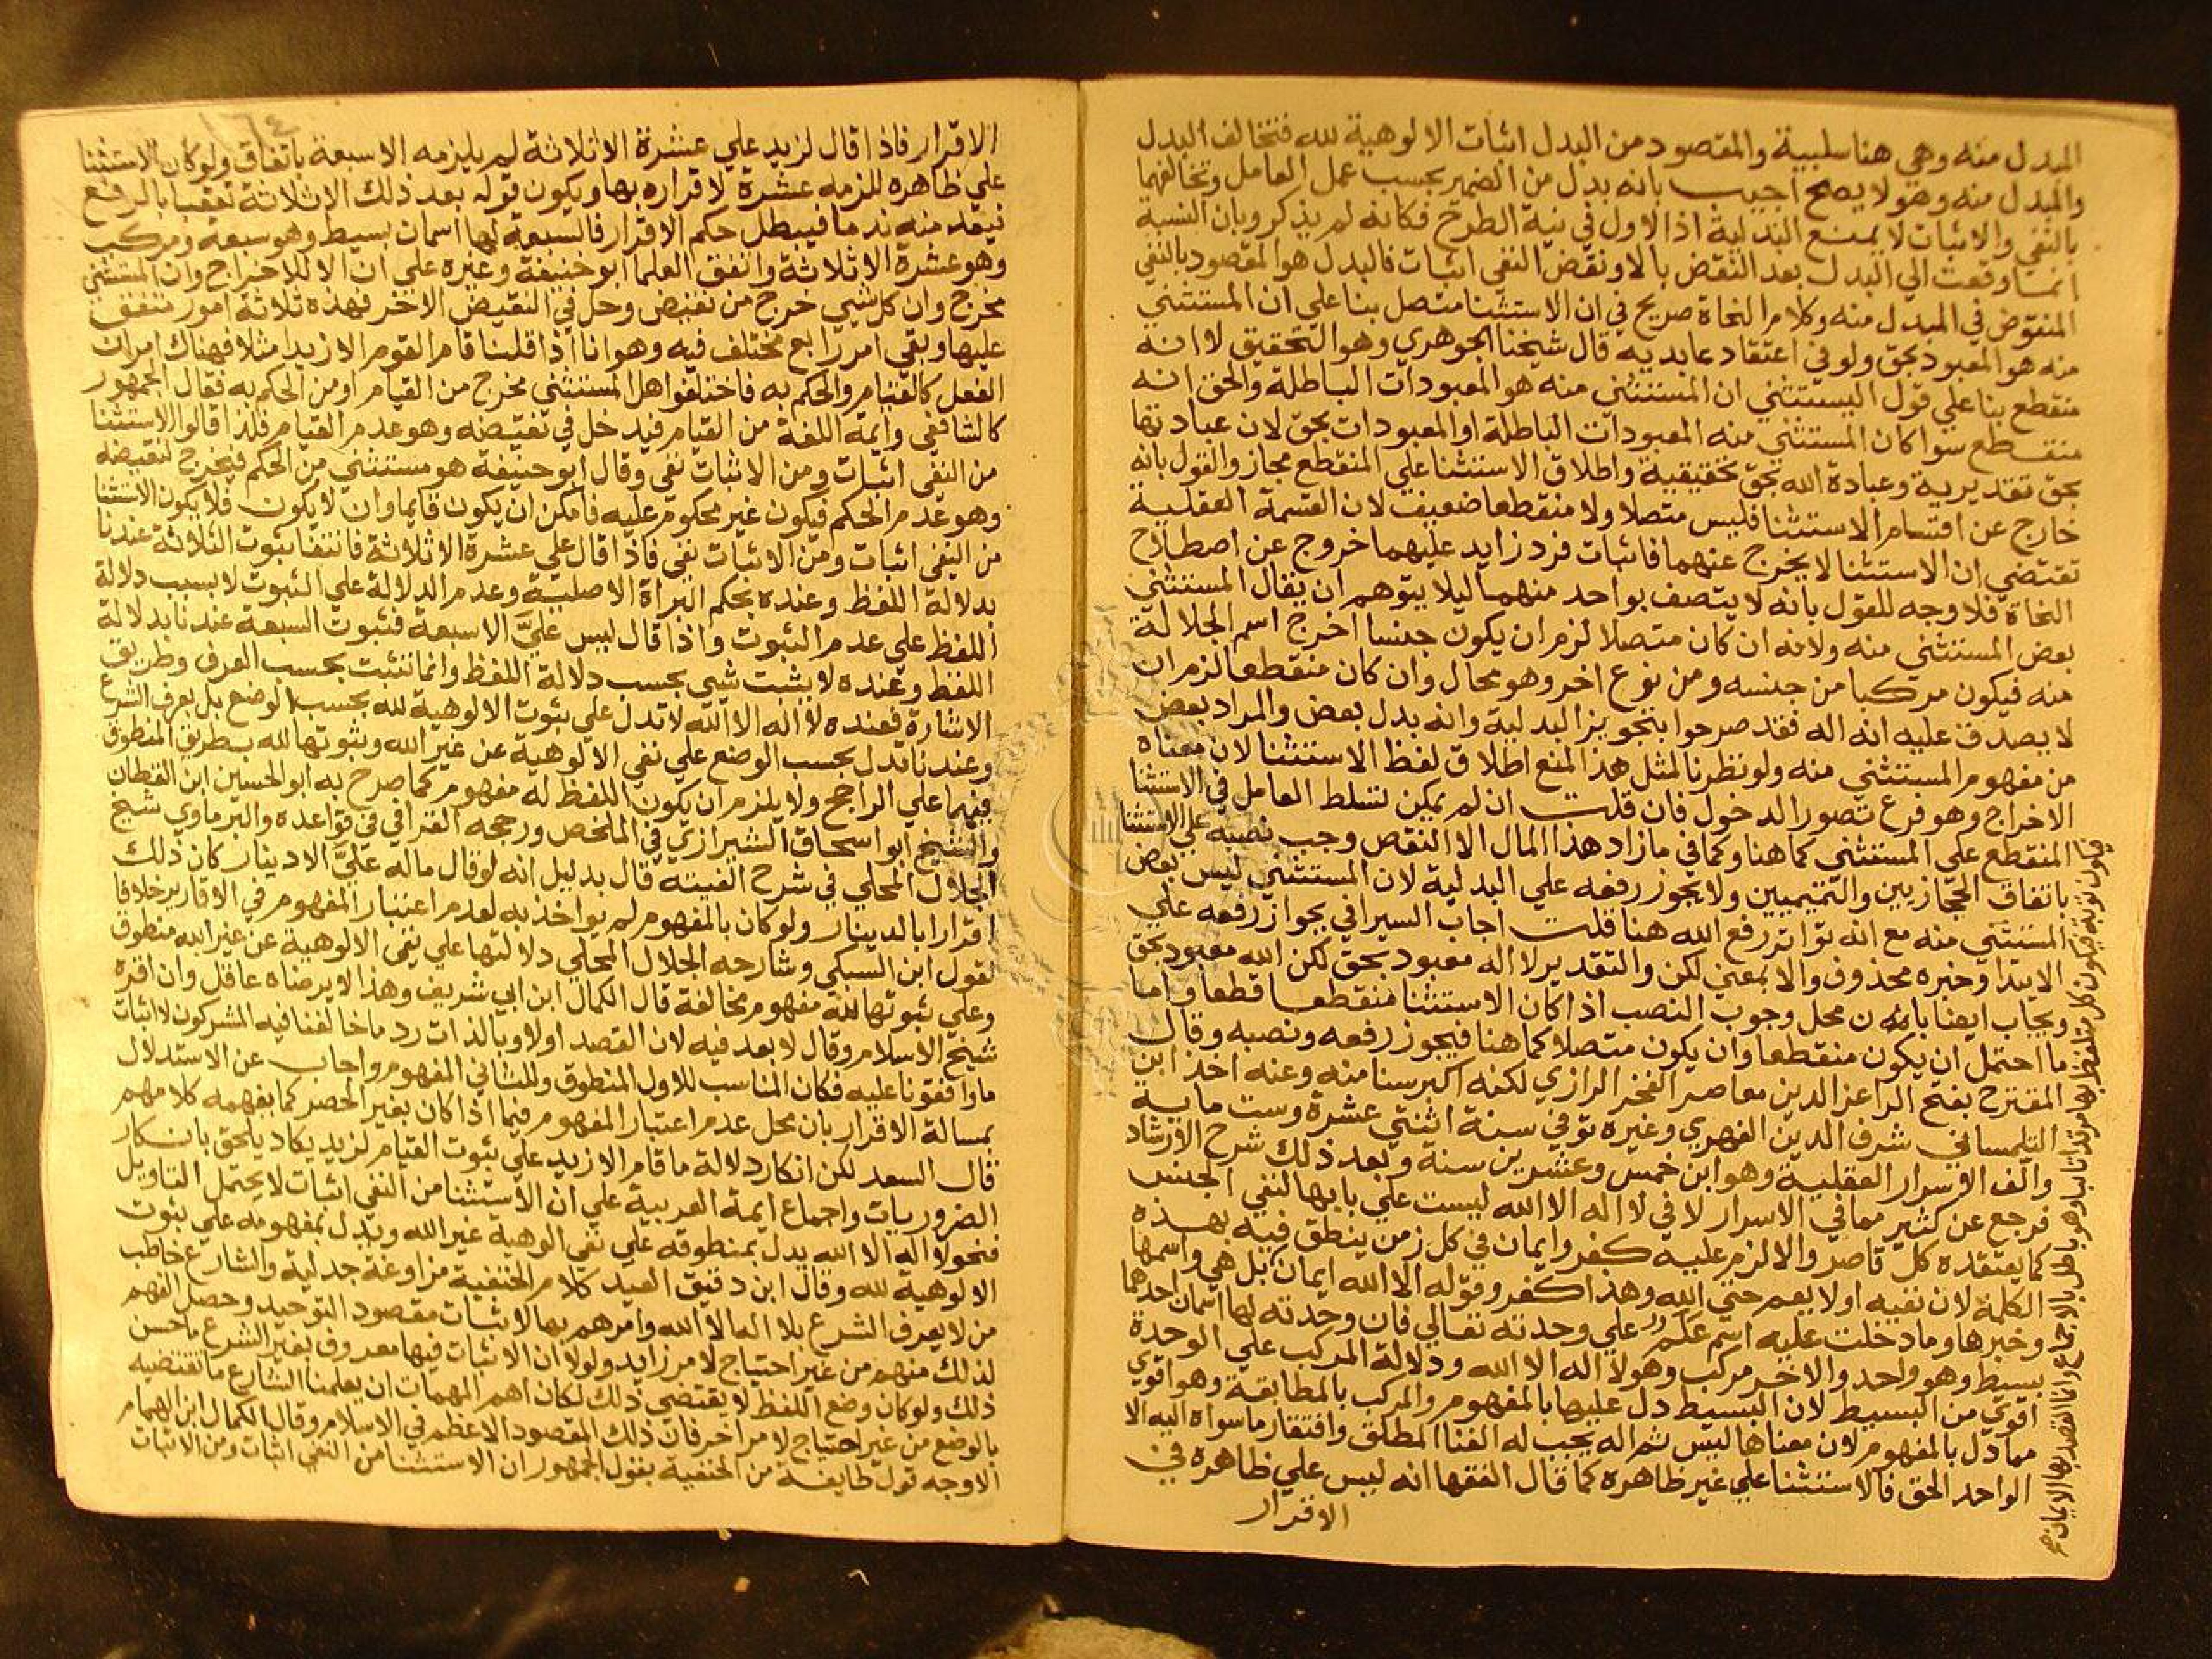 المبدل منه وهي هنا سلبية والمقصود من البدل اثبات الالوهية لله فتخالف البدل
والمبدل منه وهو لا يصح اجيب بانه بدل من الضمير بحسب عمل العامل وتخالفهما
بالنفي والاثبات لا يمنع البدلية اذ الاول في نية الطرح فكانه لم يذكر وبان النسبة
انما وقعت الي البدل بعد النقض بالا ونقض النفي اثبات فالبدل هو المقصود بالنفي
المنقوض في المبدل منه وكلام النحاة صريح في ان الاستثنا متصل بنا علي ان المستثني
منه هو المعبود بحق ولو في اعتقاد عابديه قال شيخنا الجوهري وهو التحقيق لا انه
منقطع بنا علي قول البستتني ان المستثني منه هو المعبودات الباطلة والحق انه
منقطع سوا كان المستثني منه المعبودات الباطلة او المعبودات بحق لان عبادتها
بحق تقديرية وعبادة الله بحق تحقيقية واطلاق الاستثنا علي المنقطع مجاز والقول بانه
خارج عن اقسام الاستثنا فليس متصلا ولا منقطعا ضعيف لان القسمة العقلية
تقتضي ان الاستثنا لا يخرج عنهما فاثبات فرد زايد عليهما خروج عن اصطلاح
النحاة فلا وجه للقول بانه لا يتصف بواحد منهما ليلا يتوهم ان يقال المستثني
بعض المستثني منه ولانه ان كان متصلا لزم ان يكون جنسا اخرج اسم الجلالة
منه فيكون مركبا من جنسه ومن نوع اخر وهو محال وان كان منقطعا لزم ان
لا يصدق عليه انه اله فقد صرحوا بتجويز البدلية وانه بدل بعض والمراد بعض
من مفهوم المستثني منه ولو نظرنا لمثل هذا المنع اطلاق لفظ الاستثنا لان معناه
الاخراج وهو فرع تصور الدخول فان قلت ان لم يمكن تسلط العامل في الاستثنا
المنقطع علي المستثني كما هنا وكما في ما زاد هذا المال الا النقص وجب نصبه علي الاستثنا
باتفاق الحجازيين والتميميين ولا يجوز رفعه علي البدلية لان المستثني ليس بعض
المستثني منه مع انه تواتر رفع الله هنا قلت اجاب السيرافي بجواز رفعه علي
الابتدا وخبره محذوف والا بمعني لكن والتقدير لا اله معبود بحق لكن الله معبود بحق
ويجاب ايضا بان محل وجوب النصب اذا كان الاستثنا منقطعا قطعا واما
ما احتمل ان يكون منقطعا وان يكون متصلا كما هنا فيجوز رفعه ونصبه وقال
المقترح بفتح الرا عز الدين معاصر الفخر الرازي لكنه اكبر سنا منه وعنه اخذ ابن
التلمساني شرف الدين الفهري وغيره توفي سنة اثنتي عشرة وست ماية
والف الاسرار العقلية وهو ابن خمس وعشرين سنة وبعد ذلك شرح الارشاد
فرجع عن كثير مما في الاسرار لا في لا اله الا الله ليست علي بابها لنفي الجنس
كما يعتقده كل قاصد والا لزم عليه كفر وايمان في كل زمن ينطق فيه بهذه
الكلمة لان نفيه اولا يعم حتي الله وهذا كفر وقوله الا الله ايمان بل هي واسمها
وخبرها وما دخلت عليه اسم علم علي وحدته تعالي فان وحدته لها اسمان احدهما
بسيط وهو واحد والاخر مركب وهو لا اله الا الله ودلالة المركب علي الوحدة
اقوي من البسيط لان البسيط دل عليها بالمفهوم والمركب بالمطابقة وهو اقوي
مما دل بالمفهوم لان معناها ليس ثم اله يجب له الغنا المطلق وافتقار ما سواه اليه الا
الواحد الحق فالاستثنا علي غير ظاهره كما قال الفقها انه ليس علي ظاهره في
الاقرار
الاقرار فاذا قال لزيد علي عشرة الا ثلاثة لم يلزمه الا سبعة باتفاق ولو كان الاستثنا
علي ظاهره للزمه عشرة لاقراره بها ويكون قوله بعد ذلك الا ثلاثة تعقيبا بالرفع
فيعد منه ندما فيبطل حكم الاقرار فالسبعة لها اسمان بسيط وهو سبعة ومركب
وهو عشرة الا ثلاثة واتفق العلما ابو حنيفة وغيره علي ان الا للاخراج وان المستثني
مخرج وان كل شي خرج من نقيض دخل في النقيض الاخر فهذه ثلاثة امور متفق
عليها وبقي امر رابع مختلف فيه وهو انا اذا قلنا قام القوم الا زيدا مثلا فهناك امران
الفعل كالقيام والحكم به فاختلفوا هل المستثني مخرج من القيام او من الحكم به فقال الجمهور
كالشافعي وايمة اللغة من القيام فيدخل في نقيضه وهو عدم القيام فلذا قالوا الاستثنا
من النفي اثبات ومن الاثبات نفي وقال ابو حنيفة هو مستثني من الحكم فيخرج لنقيضه
وهو عدم الحكم فيكون غير محكوم عليه فامكن ان يكون قايما وان لا يكون فلا يكون الاستثنا
من النفي اثبات ومن الاثبات نفي فاذا قال علي عشرة الا ثلاثة فانتفا ثبوت الثلاثة عندنا
بدلالة اللفظ وعنده بحكم البراة الاصلية وعدم الدلالة علي الثبوت لا بسبب دلالة
اللفظ علي عدم الثبوت واذا قال ليس عليّ الا سبعة فثبوت السبعة عندنا بدلالة
اللفظ وعنده لا يثبت شي بحسب دلالة اللفظ وانما تثبت بحسب العرف وطريق
الاشارة فعنده لا اله الا الله لا تدل علي ثبوت الالوهية لله بحسب الوضع بل بعرف الشرع
وعندنا تدل بحسب الوضع علي نفي الالوهية عن غير الله وثبوتها لله بطريق المنطوق
فيهما علي الراجح ولا يلزم ان يكون اللفظ له مفهوم كما صرح به ابو الحسين ابن القطان
والشيخ ابو اسحاق الشيرازي في الملخص ورجحه القرافي في قواعده والبرماوي شيخ
الجلال المحلي في شرح الفيته قال بدليل انه لو قال ما له عليّ الا دينار كان ذلك
اقرارا بالدينار ولو كان بالمفهوم لم يواخذ به لعدم اعتبار المفهوم في الاقارير خلافا
لقول ابن السبكي وشارحه الجلال المحلي دلالتها علي نفي الالوهية عن غير الله منطوق
وعلي ثبوتها لله مفهوم مخالفة قال الكمال ابن ابي شريف وهذا لا يرضاه عاقل وان اقره
شيخ الاسلام وقال لا بعد فيه لان القصد اولا وبالذات رد ما خالفنا فيه المشركون لا اثبات
ما وافقونا عليه فكان المناسب للاول المنطوق وللثاني المفهوم واجاب عن الاستدلال
بمسالة الاقرار بان محل عدم اعتبار المفهوم فيما اذا كان بغير الحصر كما يفهمه كلامهم
قال السعد لكن انكار دلالة ما قام الا زيد علي ثبوت القيام لزيد يكاد يلحق بانكار
الضروريات واجماع ايمة العربية علي ان الاستثنا من النفي اثبات لا يحتمل التاويل
فنحو لا اله الا الله يدل بمنطوقه علي نفي الوهية غير الله ويدل بمفهومه علي ثبوت
الالوهية لله وقال ابن دقيق العيد كلام الحنفية مراوغة جدلية والشارع خاطب
من لا يعرف الشرع بلا اله الا الله وامرهم بها لاثبات مقصود التوحيد وحصل الفهم
لذلك منهم من غير احتياج لامر زايد ولولا ان الاثبات فيها معروف بغير الشرع ما حسن
ذلك ولو كان وضع اللفظ لا يقتضي ذلك لكان اهم المهمات ان يعلمنا الشارع ما تقتضيه
بالوضع من غير احتياج لامر اخر فان ذلك المقصود الاعظم في الاسلام وقال الكمال ابن الهمام
الاوجه قول طايفة من الحنفية بقول الجمهور ان الاستثنا من النفي اثبات ومن الاثبات